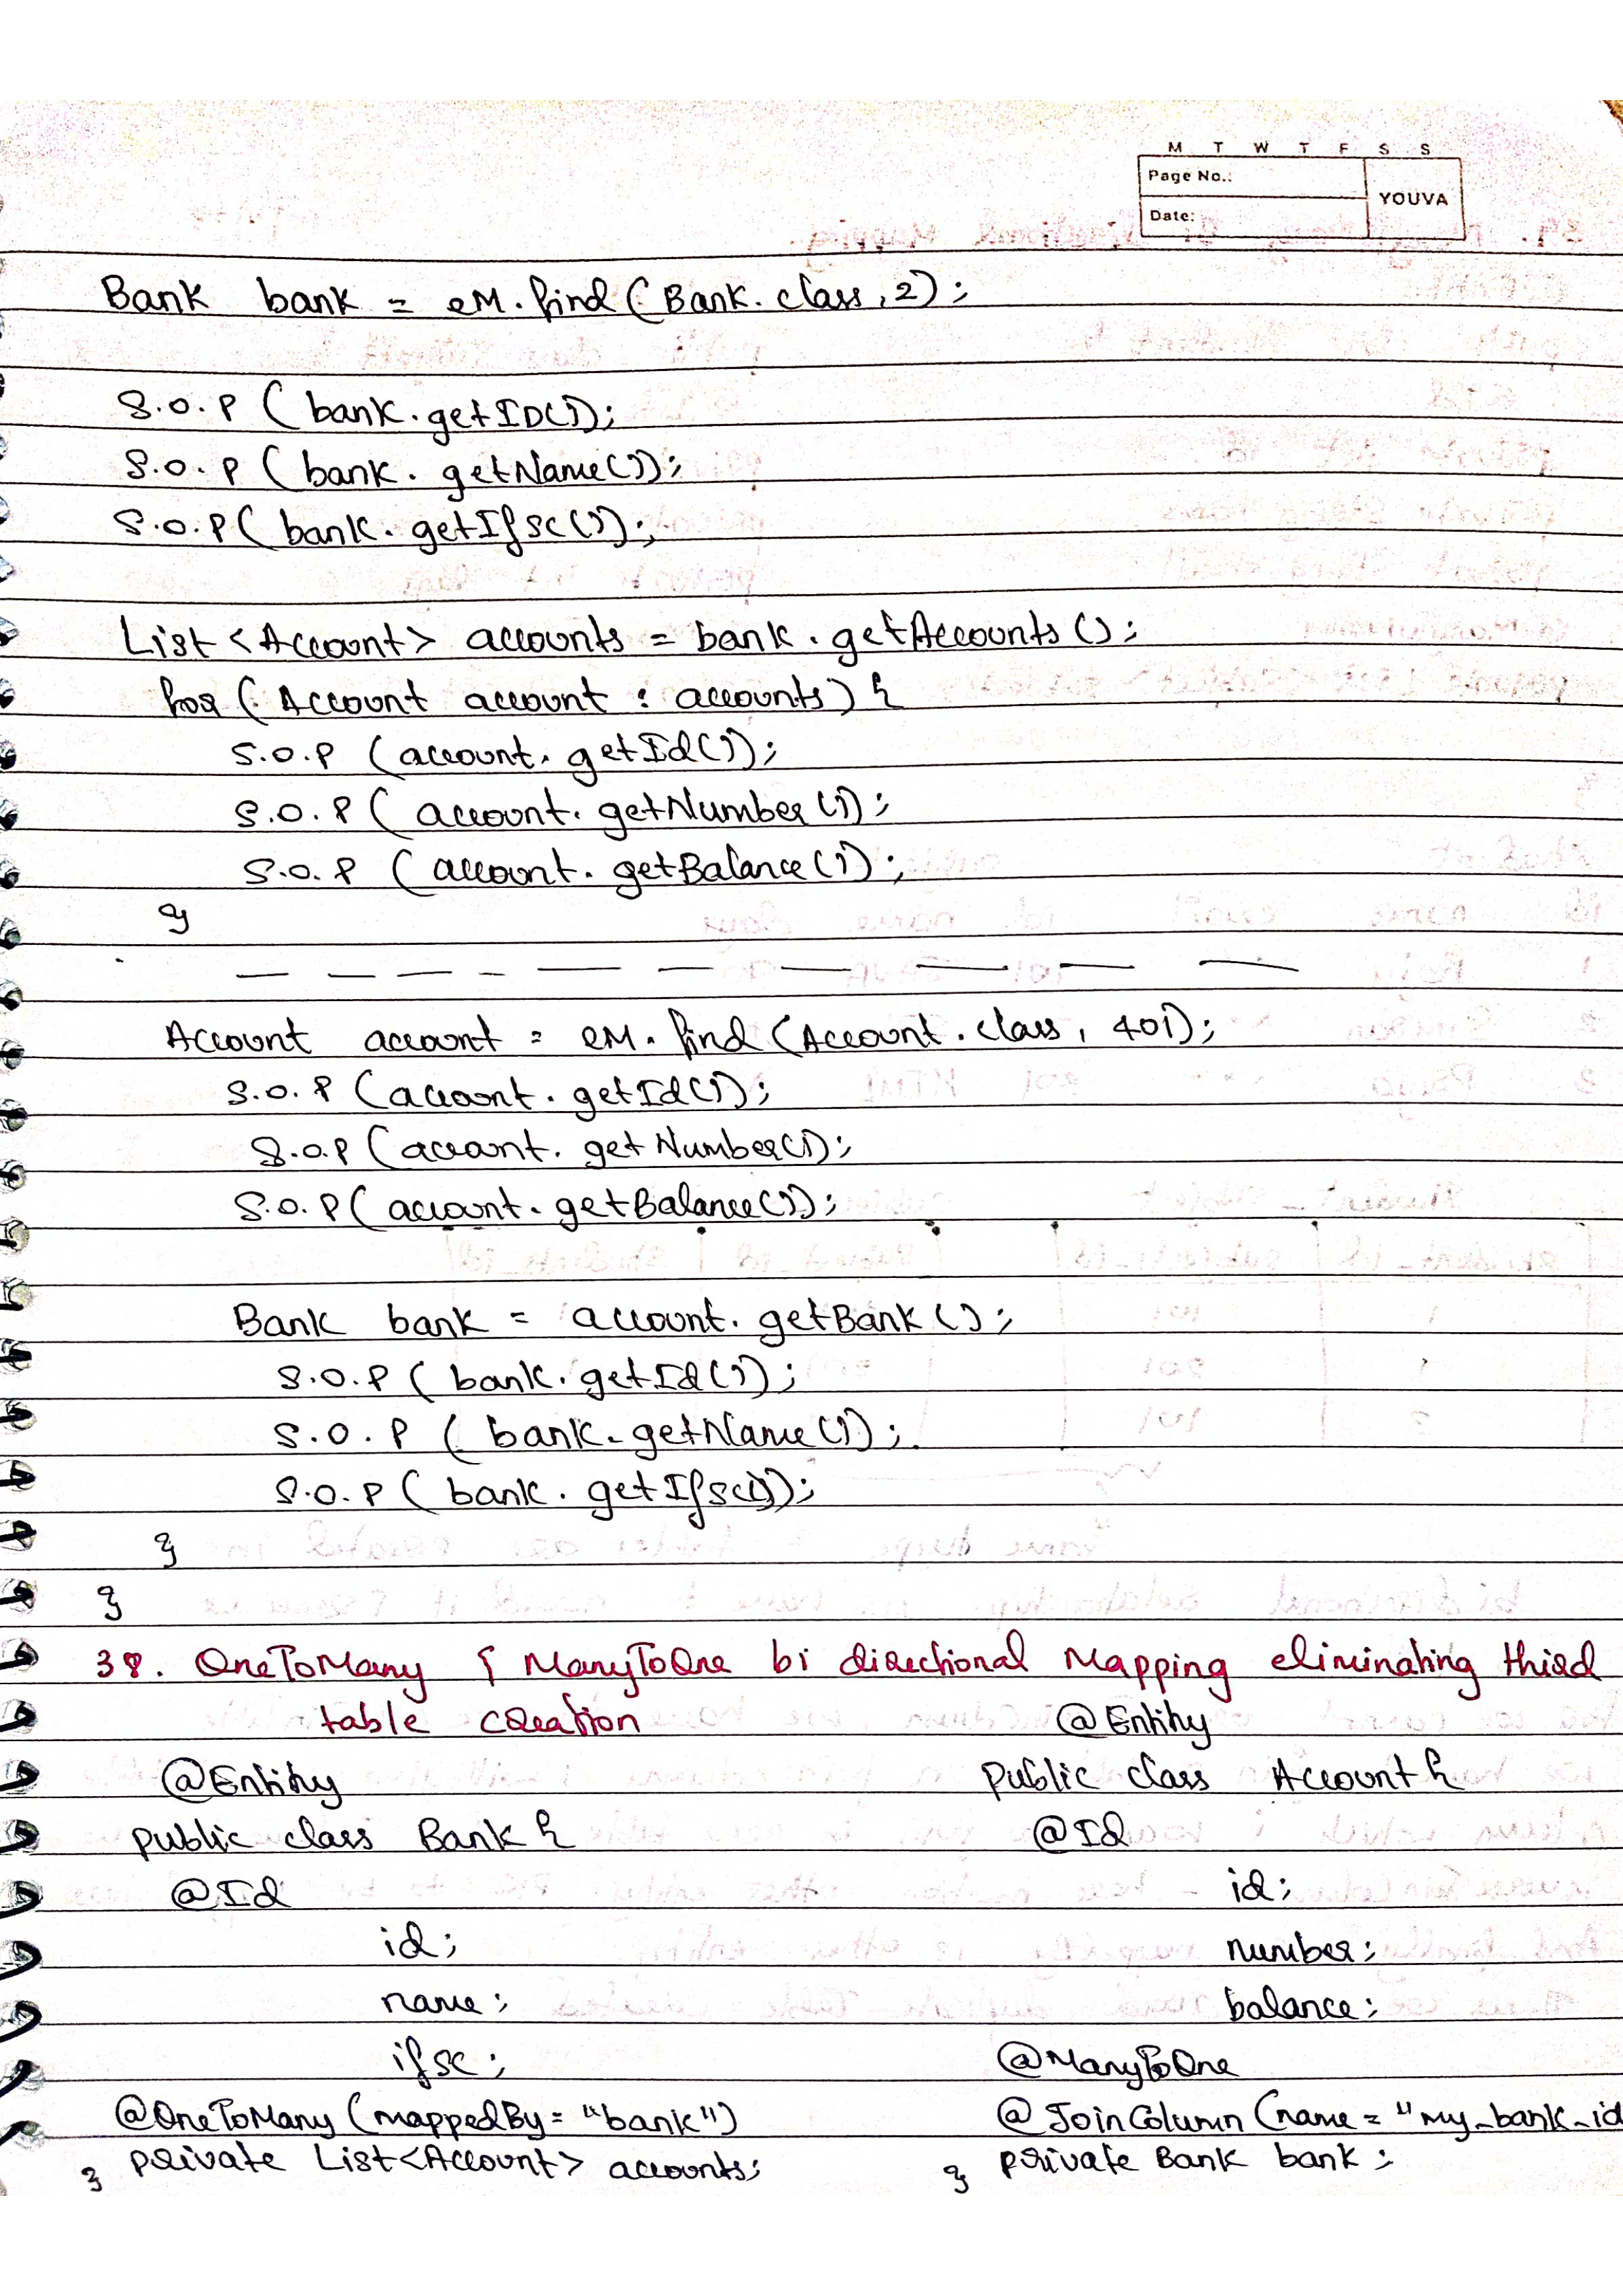 M T W T F S S
Page No.:
YOUVA
Date:
Bank bank = eM.find(Bank.class,2);
S.O.P (bank.getID());
S.O.P (bank.getName());
S.O.P(bank.getIfsc());
List<Account> accounts = bank.getAccounts();
for (Account account : accounts) {
S.O.P (account.getId());
S.O.P (account.getNumber());
S.O.P (account.getBalance());
}
— — — — — — — — — —
Account account = eM.find(Account.class, 401);
S.O.P (account.getId());
S.O.P (account.getNumber());
S.O.P (account.getBalance());
Bank bank = account.getBank();
S.O.P (bank.getId());
S.O.P (bank.getName());
S.O.P (bank.getIfsc());
}
}
38. OneToMany & ManyToOne bi directional Mapping eliminating third
table creation
@Entity
public class Bank {
@Id
id;
name;
ifsc;
@OneToMany (mappedBy = "bank")
private List<Account> accounts;
}
@Entity
public class Account {
@Id
id;
number;
balance;
@ManyToOne
@JoinColumn (name = "my_bank_id
private Bank bank;
}